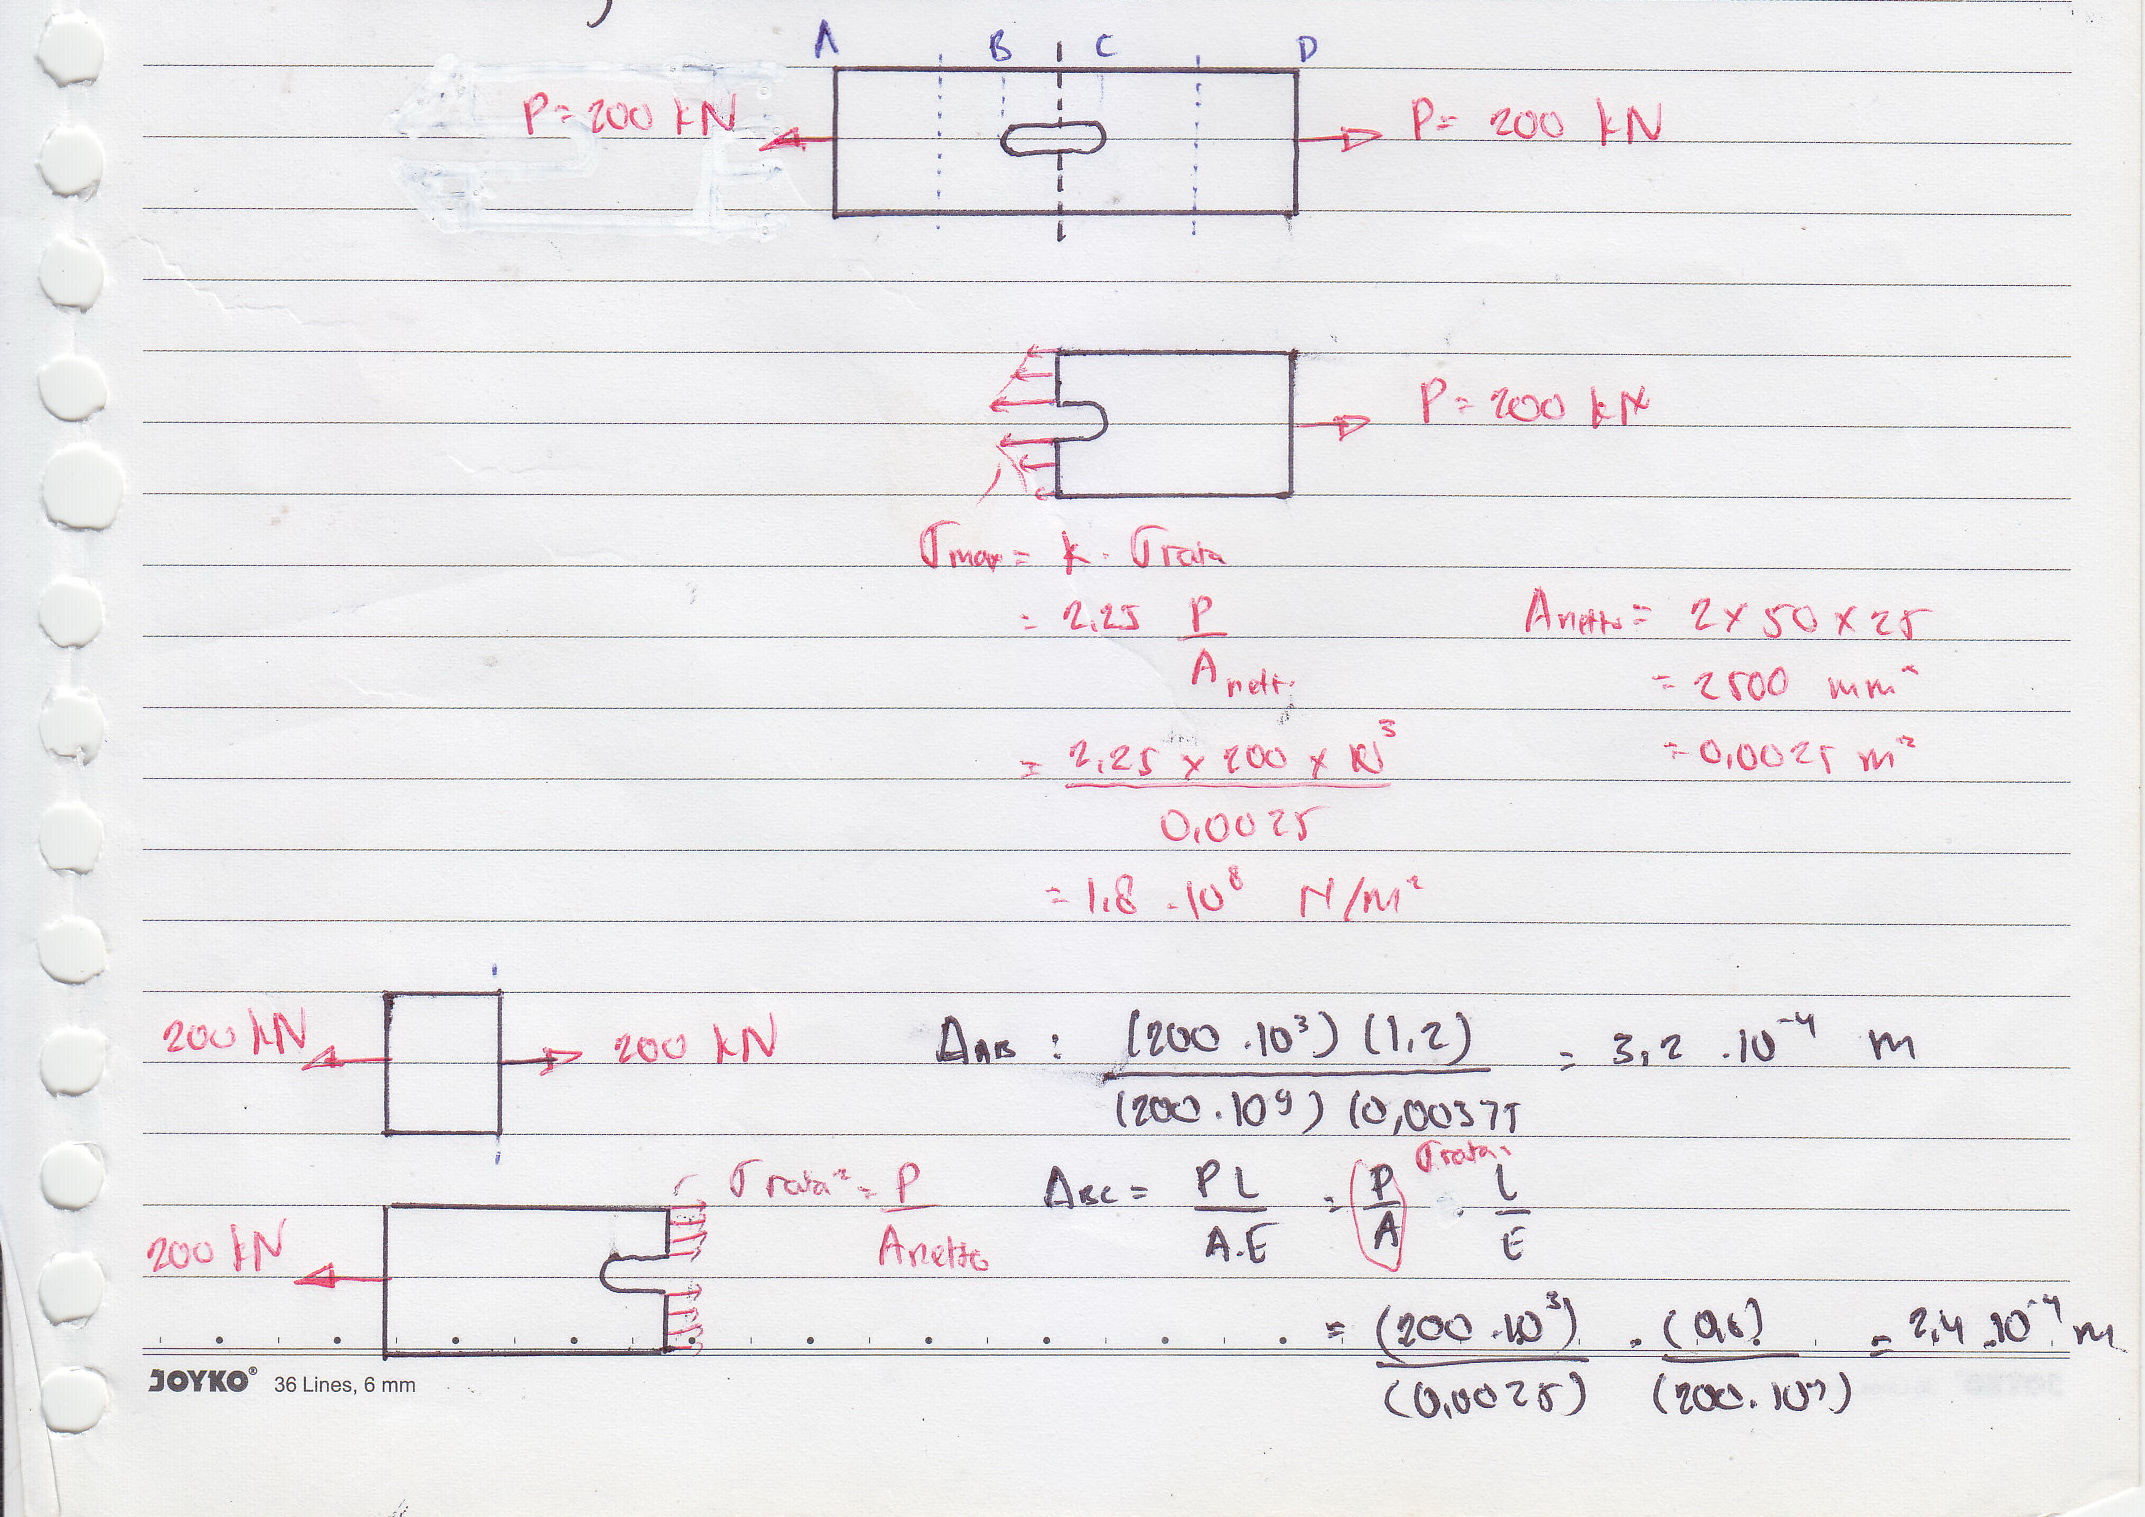 A B C D
P = 200 kN P = 200 kN
P = 200 kN
σmax = k . σrata
= 2,25 P / A netto
Anetto = 2 x 50 x 25
= 2500 mm²
= 0,0025 m²
= 2,25 x 200 x 10³ / 0,0025
= 1,8 . 10⁸ N/m²
200 kN 200 kN
ΔAB : (200 . 10³) (1,2) / (200 . 10⁹) (0,00375 = 3,2 . 10⁻⁴ m
200 kN
σrata² = P / Anetto
ΔBC = P L / A.E = P / A . L / E
σrata²
= (200 . 10³) / (0,0025) . (0,6) / (200 . 10⁹) = 2,4 . 10⁻⁴ m
JOYKO® 36 Lines, 6 mm